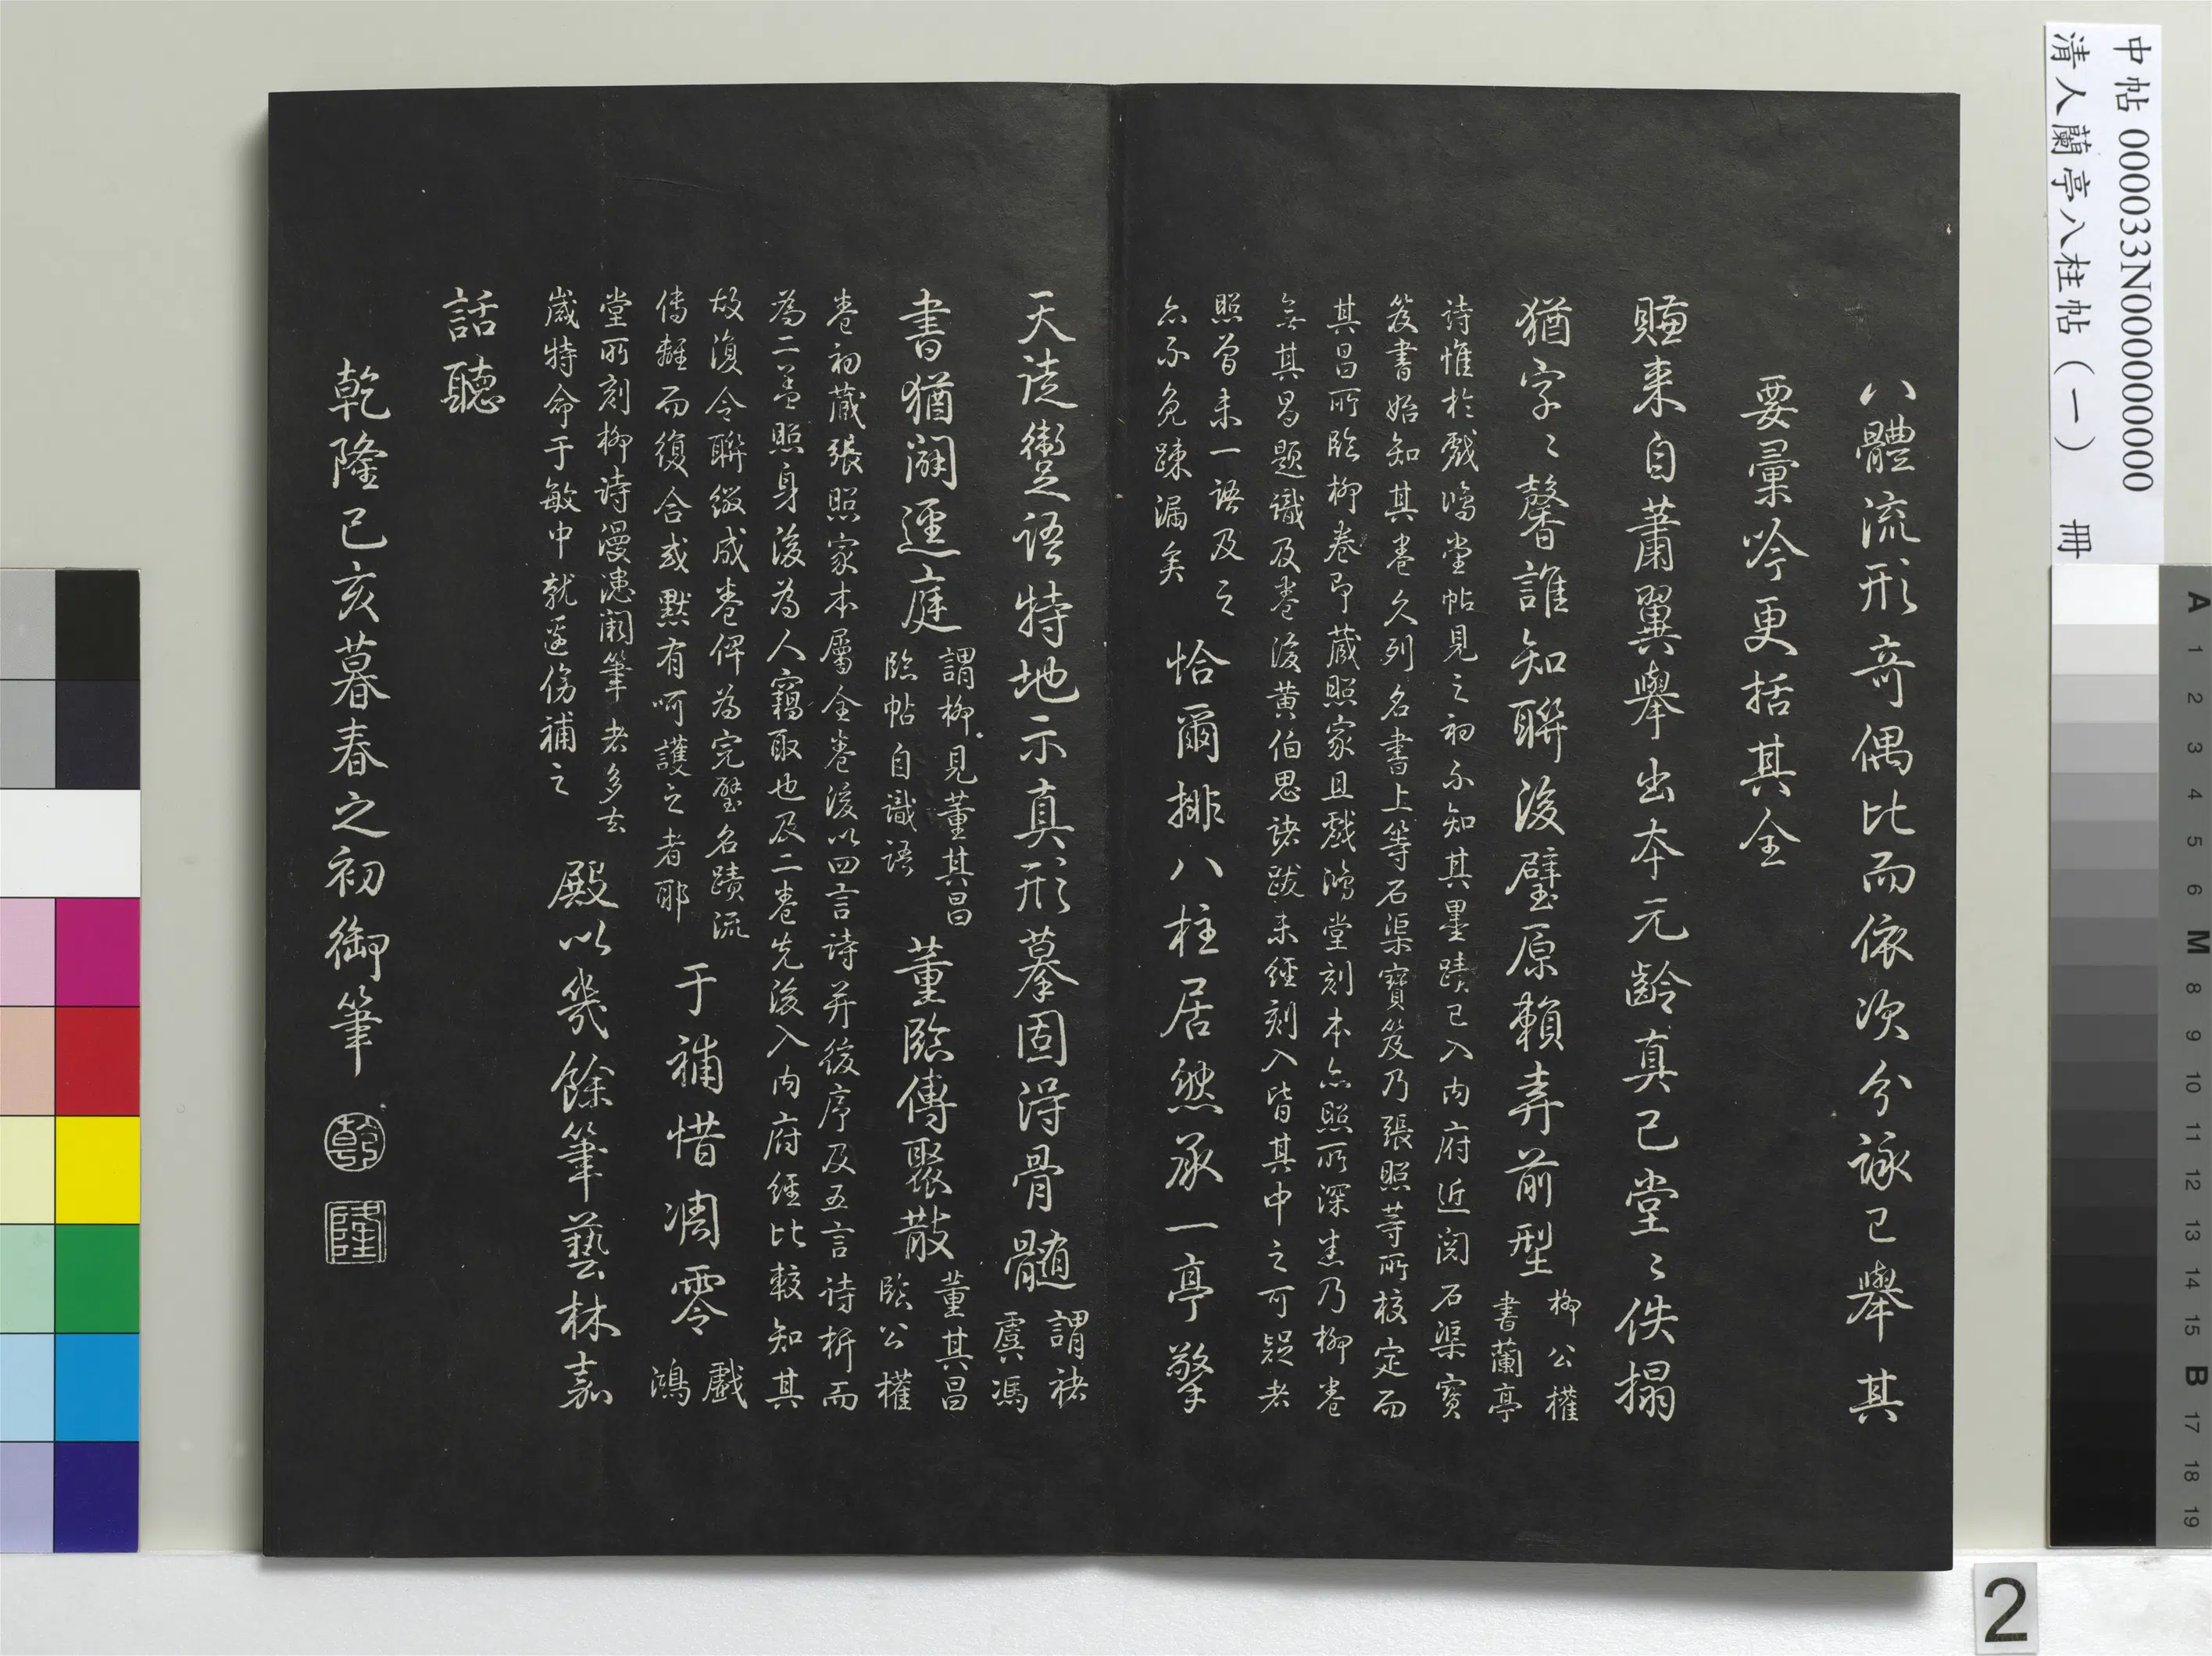 八體流形奇偶比而依次分詠已舉其
要彙吟更括其全
賺来自蕭翼舉出本元齡真已堂〻佚搨
猶字〻馨誰知聯後璧原賴弄前型
柳公權
書蘭亭
詩惟於戲鴻堂帖見之初不知其墨蹟已入內府近閱石渠寶
笈書始知其卷久列名書上等石渠寶笈乃張照等所校定而
其昌所臨柳卷即藏照家且戲鴻堂刻本亦照所深悉乃柳卷
無其昌題識及卷後黃伯思諸跋未經刻入皆其中之可疑者
照曾未一語及之
亦不免踈漏矣
恰爾排八柱居然承一亭擎
天徒衛足語特地示真形摹固得骨髓
謂褚
虞馮
書猶闢逕庭
謂柳見董其昌
臨帖自識語
董臨傳聚散
董其昌
臨公權
卷初藏張照家本屬全卷後以四言詩并後序及五言詩析而
為二葢照身後為人竊取也及二卷先後入內府經比較知其
故復令聯綴成卷俾為完璧名蹟流
傳離而復合或默有呵護之者耶
于補惜凋零
戲
鴻
堂所刻柳詩漫漶闕筆者多去
歲特命于敏中就邊傍補之
殿以幾餘筆藝林嘉
話聽
乾隆己亥暮春之初御筆
乾
隆
中帖 000033N000000000000
清人蘭亭八柱帖（一） 冊
2
A 1 2 3 4 5 6 M 8 9 10 11 12 13 14 15 B 17 18 19